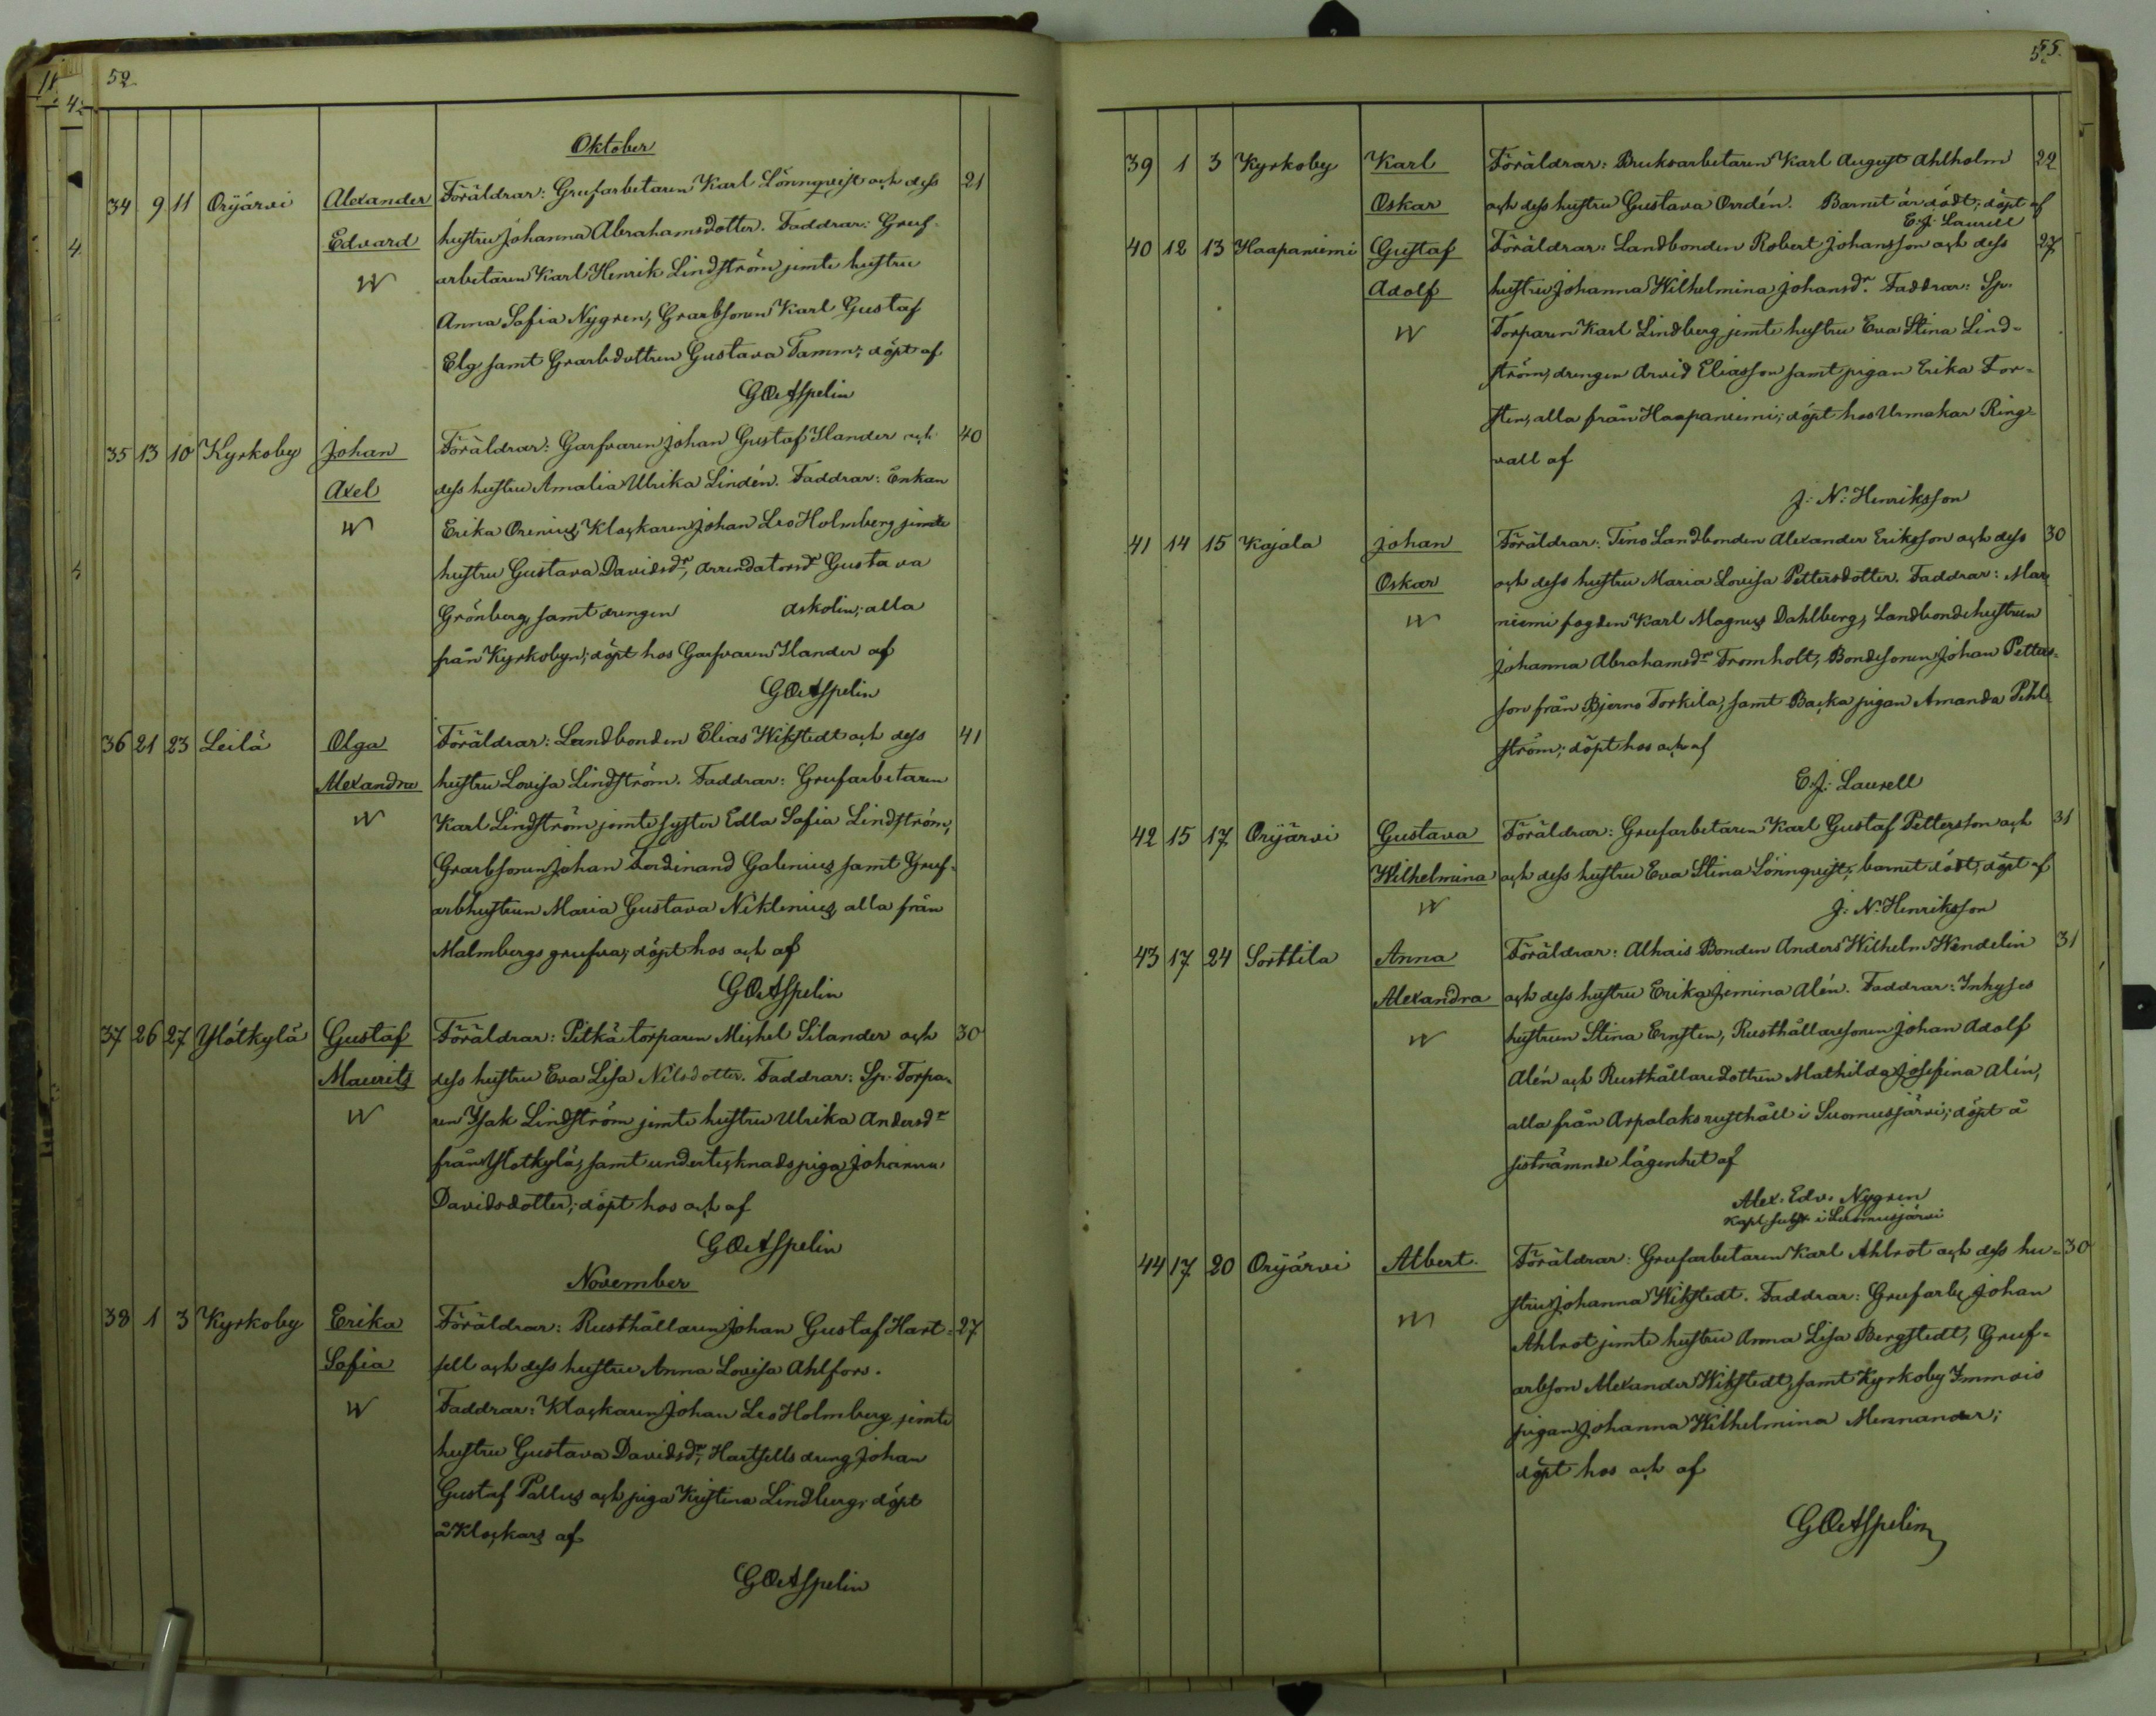 52.
Oktober
34 9 11 Orijärvi Alexander Föräldrar: Grufarbetaren Karl Lönnqvist och dess 21
Edvard hustru Johanna Abrahamsdotter. Faddrar: Gruf-
arbetaren Karl Henrik Lindström jemte hustru
Anna Safia Nygren, Grarbsonen Karl Gustaf
Elg samt Grarbdottren Gustava Tamm; döpt af
G Oe Aspelin
35 13 10 Kyrkoby Johan Föräldrar: Garfvaren Johan Gustaf Ilander och 40
Axel dess hustru Amalia Ulrika Lindén. Faddrar: Enkan
Erika Orenius, Klockaren Johan Leo Holmberg jemte
hustru Gustava Davidsdr, arrendatorsdr Gustava
Grönberg, samt drengen Askolin; alla
från Kyrkobyn; döpt hos Garfvaren Ilander af
G Oe Aspelin
36 21 23 Leilä Olga Föräldrar: Landbonden Elias Wikstedt och dess 41
Alexandra hustru Lovisa Lindström. Faddrar: Grufarbetaren
Karl Lindström jemte syster Edla Sofia Lindström,
Grarbsonen Johan Ferdinand Galenius samt Gruf-
arbhustrun Maria Gustava Niklenius, alla från
Malmbergs grufva; döpt hos och af
G Oe Aspelin
37 26 27 Ylötkylä Gustaf Föräldrar: Pitkä torparen Michel Silander och 30
Maurits dess hustru Eva Lisa Nilsdotter. Faddrar: Sp. Torpa-
ren Isak Lindström jemte hustru Ulrika Andersdr
från Ylötkylä, samt undertecknads piga Johanna
Davidsdotter; döpt hos och af
G Oe Aspelin
November
38 1 3 Kyrkoby Erika Föräldrar: Rusthållaren Johan Gustaf Hart- 27
Sofia sell och dess hustru Anna Lovisa Ahlfors.
Faddrar: Klockaren Johan Leo Holmberg jemte
hustru Gustava Davidsdr, Hartsells dreng Johan
Gustaf Pallus och piga Kristina Lindberg; döpt
å Klockars af
G Oe Aspelin
55.
39 1 3 Kyrkoby Karl Föräldrar: Bruksarbetaren Karl August Ahlholm 22
Oskar och dess hustru Gustava Orrdén. Barnet är dödt; döpt af
E. J. Laurell
40 12 13 Haapaniemi Gustaf Föräldrar: Landbonden Robert Johansson och dess 27
Adolf hustru Johanna Wilhelmina Johansdr. Faddrar: Sp.
Torparen Karl Lindberg jemte hustru Eva Stina Lind-
ström, drengen Arvid Eliasson samt pigan Erika For-
sten, alla från Haapaniemi; döpt hos Urmakar Ring-
vall af
J. N. Henriksson
41 14 15 Kajala Johan Föräldrar: Tino Landbonden Alexander Eriksson och dess 30
Oskar och dess hustru Maria Lovisa Pettersdotter. Faddrar: Mar-
niemi fogden Karl Magnus Dahlberg, Landbondehustrun
Johanna Abrahamsdr Fromholt, Bondesonen Johan Petters-
son från Bjerno Torkila, samt Backa pigan Amanda Pihl-
ström; döpt hos och af
E. J. Laurell
42 15 17 Orijärvi Gustava Föräldrar: Grufarbetaren Karl Gustaf Pettersson och 31
Wilhelmina och dess hustru Eva Stina Lönnqvist; barnet dödt, döpt af
J. N. Henriksson
43 17 24 Sorttila Anna Föräldrar: Alhais Bonden Anders Wilhelm Wendelin 31
Alexandra och dess hustru Erika Jemina Alén. Faddrar: Inhyses
hustrun Stina Ernsten, Rusthållaresonen Johan Adolf
Alén och Rusthållaredottren Mathilda Josefina Alén,
alla från Arpalaks rusthåll i Suomusjärvi; döpt å
sistnämnde lägenhet af
Alex. Edv. Nygren
Kapl. subst. i Suomusjärvi
44 17 20 Orijärvi Albert. Föräldrar: Grufarbetaren Karl Ahlrot och dess hu- 30
stru Johanna Wikstedt. Faddrar: Grufarb. Johan
Ahlrot jemte hustru Anna Lisa Bergstedt, Gruf-
arbson Alexander Wikstedt, samt Kyrkoby Immois
pigan Johanna Wilhelmina Mennander;
döpt hos och af
G Oe Aspelin